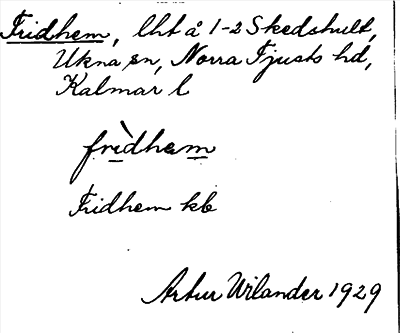 Fridhem, lht å 1-2 Skedshult,
Ukna sn, Norra Tjusts hd,
Kalmar l
frìdhem
Fridhem kb
Artur Wilander 1929